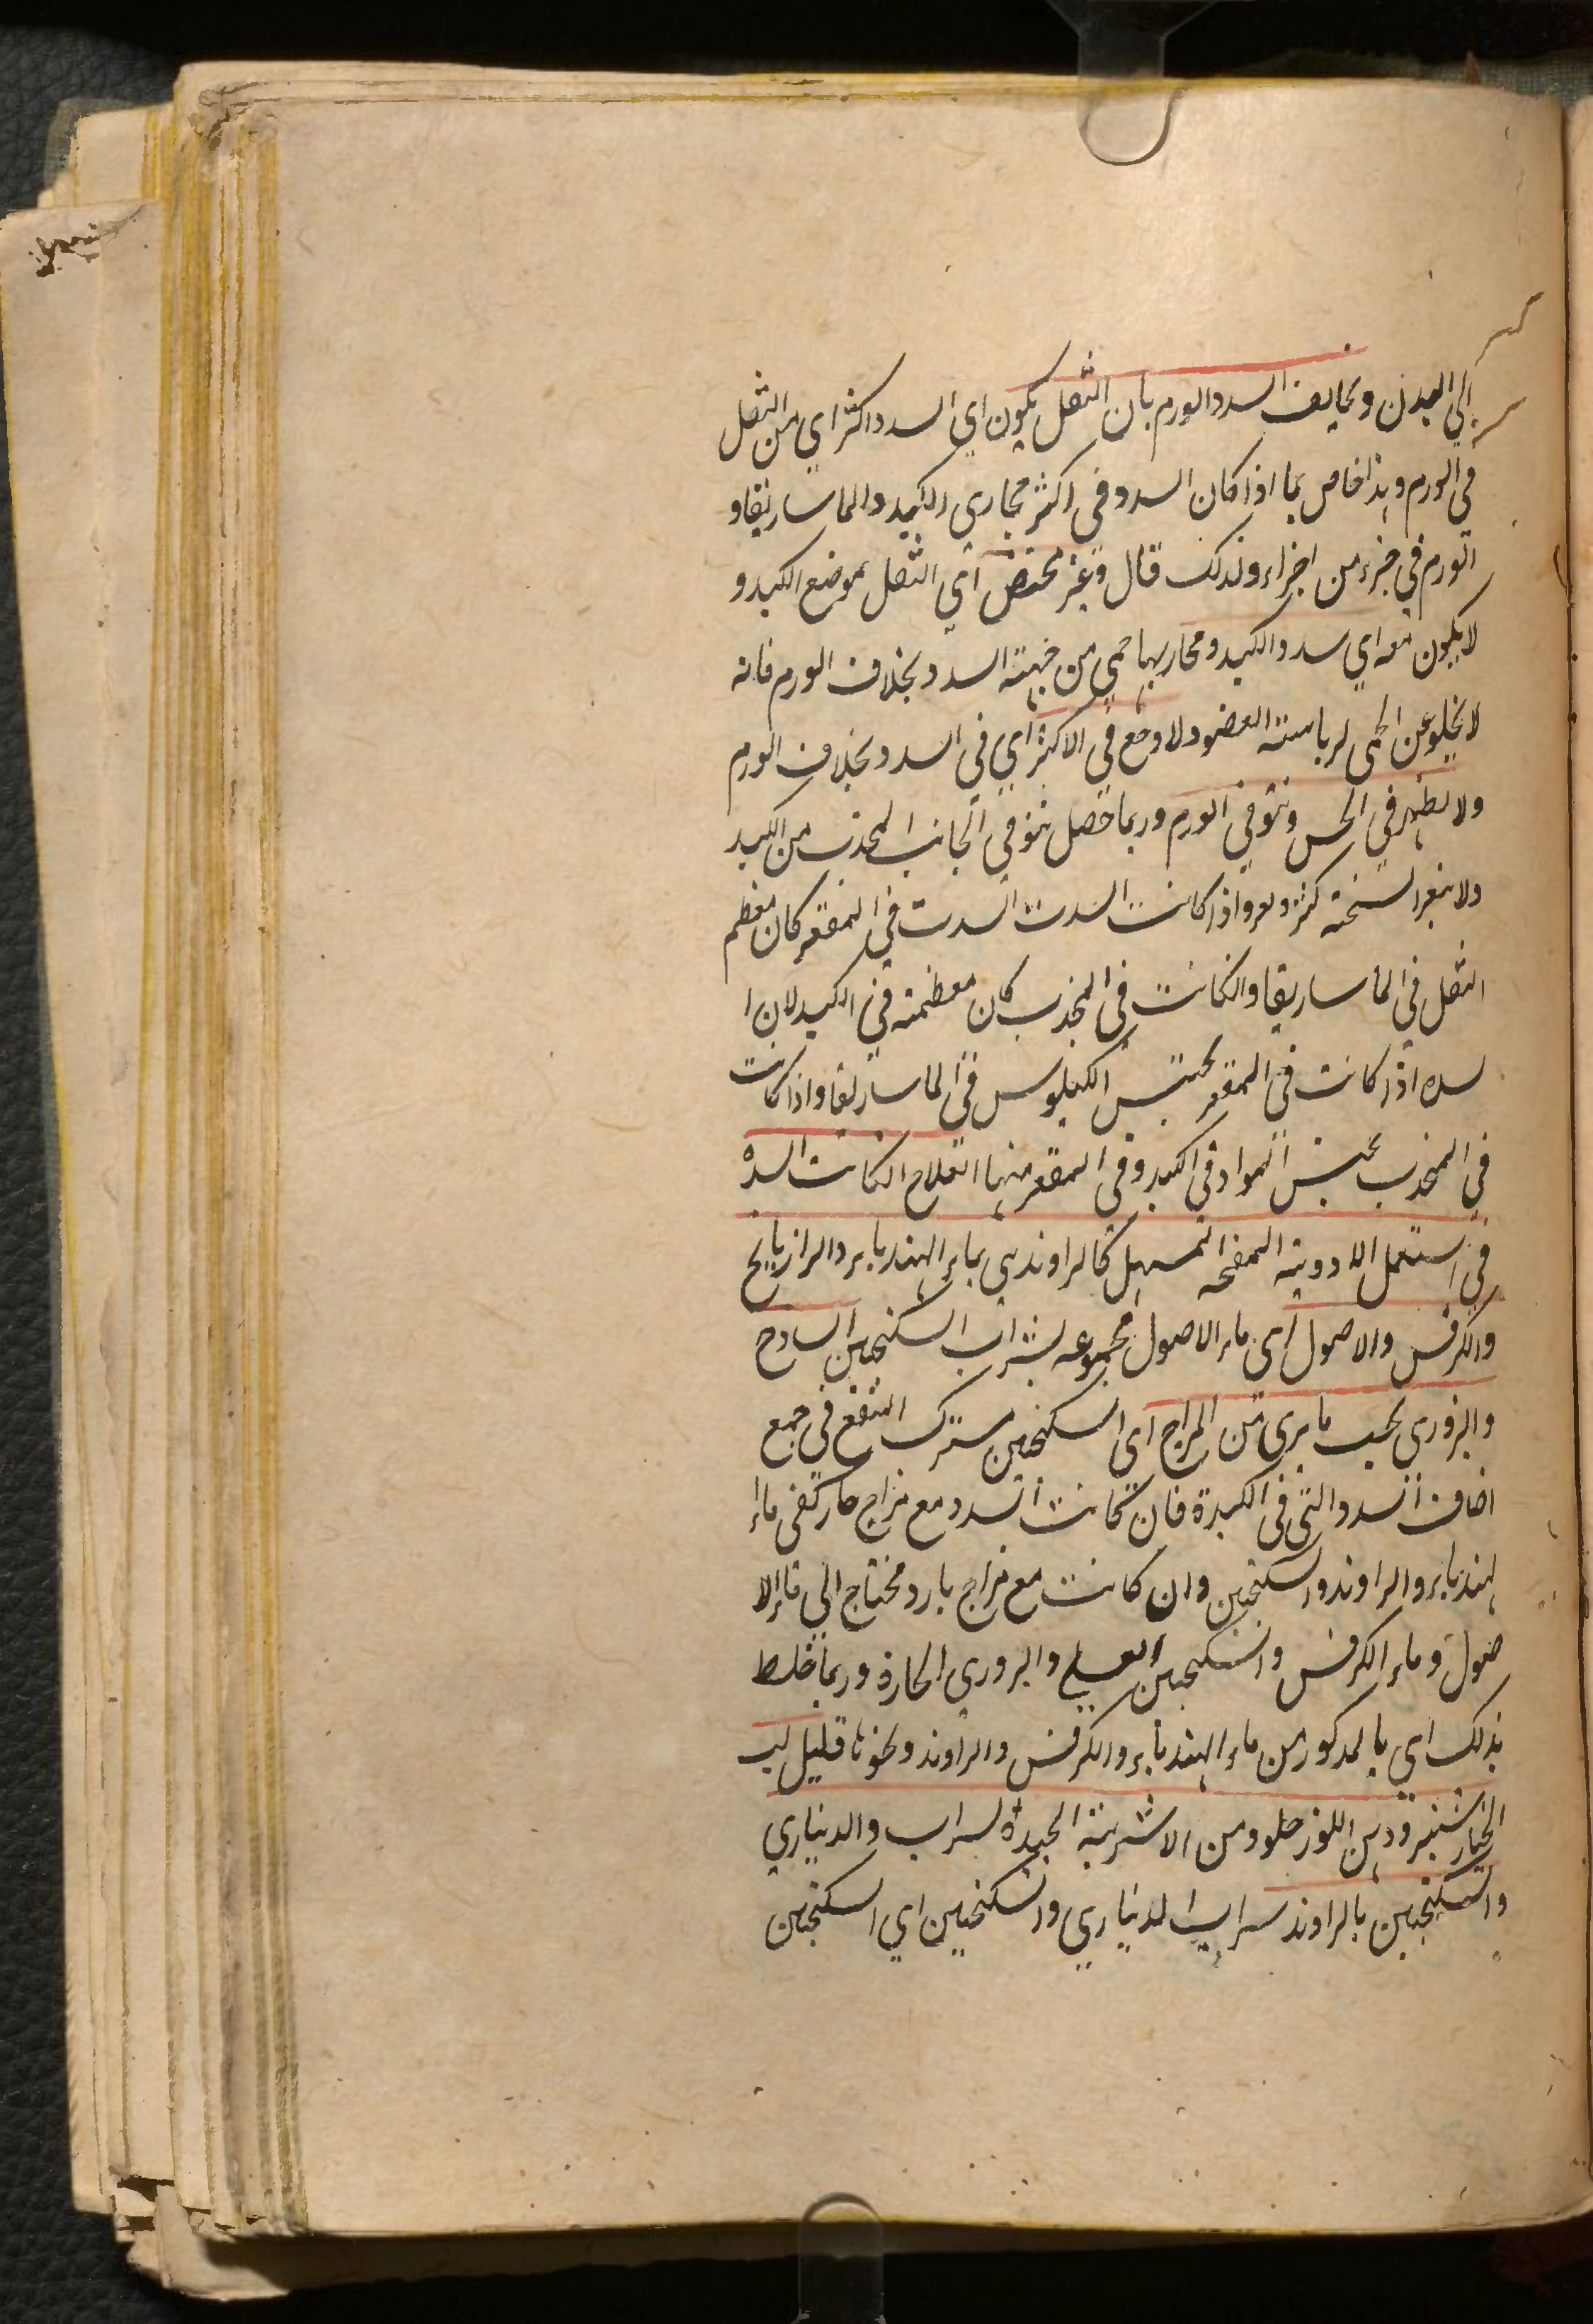 الى البدن ويخالف السدد الورم بان الثقل يكون اي السدد اكثر اي من الثقل
في الورم وهذا خاص بما اذا كان السدد في اكثر مجاري الكبد والماساريقا و
الورم في جزء من اجزاء ولذلك قال وغير مختص اي الثقل بموضع الكبد و
لا يكون معه اي سدد الكبد ومجاريها حمى من جهته السدد بخلاف الورم فانه
لا يخلو عن الحمى لرياسته العضو ولا وجع في الاكثر اي في السدد بخلاف الورم
ولا يظهر في الحس ونتو في الورم وربما حصل نتو في الجانب المحدب من الكبد
ولا يتغير السحنته كثر واذا كانت السدت السدت في المقعر كان معظم
الثقل في الماساريقا وانكانت في المحدب كان معظمته في الكبد لان ا
لسده اذا كانت في المقعر يحتبس الكيلوس في الماساريقا واذا كانت
في المحدب يحتبس المواد في الكبد وفي المقعر منها العلاج انكانت السدة
في استعمل الادويته المفتحه المسهل كالراوندي بماء الهندباء والرازيانج
والكرفس والاصول اي ماء الاصول مجموعه بشراب السكنجبين السادج
والبزوري بحسب ما يرى من المزاج اى السكنجبين مشترك النفع في جميع
اضاف السدد التي في الكبدة فان كانت السدد مع مزاج حار كفى ماء ا
لهندباء والراوند والسكنجبين وان كانت مع مزاج بارد محتاج الى ماء الا
صول وماء الكرفس والسكنجبين العسلي والبزوري الحارة وربما خلط
بذلك اي بالمذكور من ماء الهندباء والكرفس والراوند ونحوها قليل لب
الخيار شنبر ودهن اللوز حلو ومن الاشربته الجيدة لسراب والديناري
والسكنجبين بالراوند سراب الديناري والسكنجبين اي السكنجبين